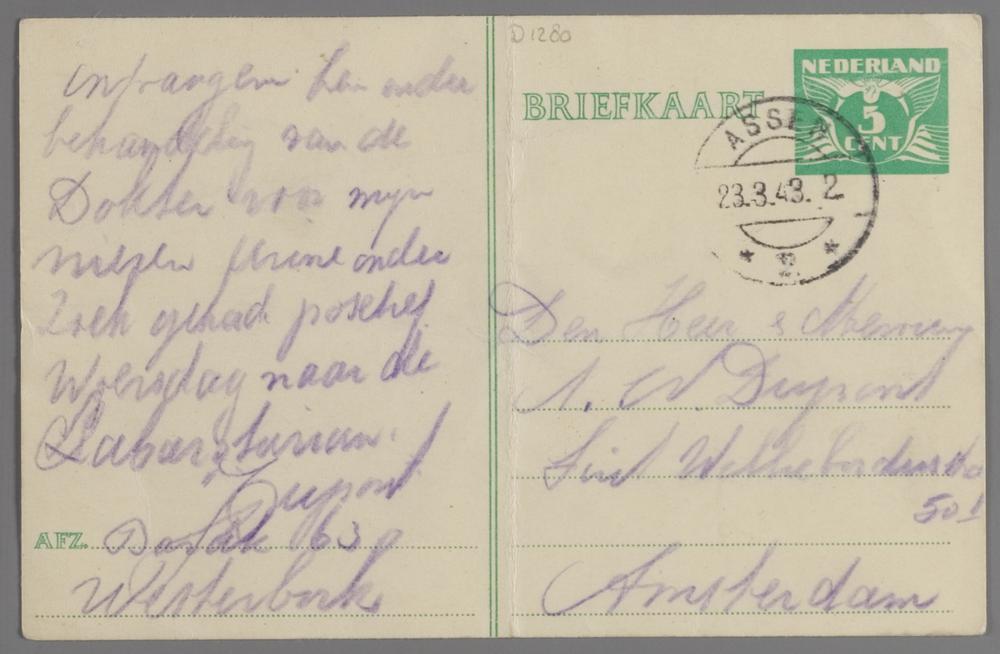 D1280
ontvangen ben onder
behandeling van de
Dokter voor mijn
nieren urine onder
zoek gehad
Woensdag naar de
Laboratorium.
Dupont
AFZ. Barak 63
Westerbork
BRIEFKAART
NEDERLAND
5
CENT
ASSEN
23.3.43. 2
* 2 *
Den Heer & Mevrouw
A. W. Dupont
Sint
50 I
Amsterdam